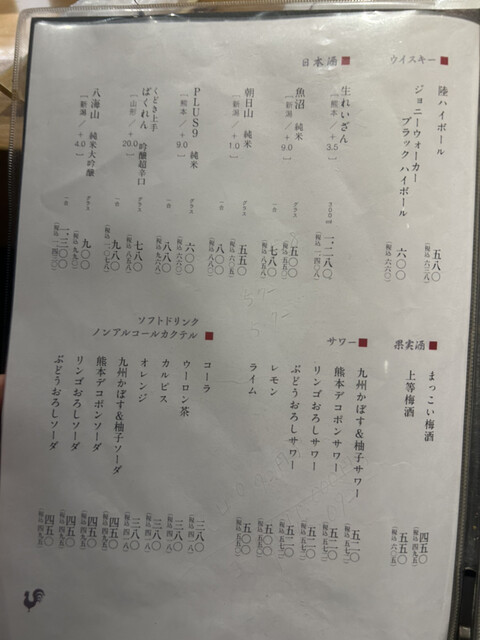 ■ウイスキー
陸ハイボール
五八〇
(税込 六三八)
ジョニーウォーカー
ブラック ハイボール
六〇〇
(税込 六六〇)
■日本酒
生れいざん
[熊本/+3.5]
300ml
一、二八〇
(税込 一、四〇八)
魚沼 純米
[新潟/+9.0]
グラス
五〇〇
(税込 五五〇)
一合
七八〇
(税込 八五八)
朝日山 純米
[新潟/+1.0]
グラス
五五〇
(税込 六〇五)
一合
八〇〇
(税込 八八〇)
PLUS9 純米
[熊本/+9.0]
グラス
六〇〇
(税込 六六〇)
一合
八八〇
くどき上手
ばくれん 吟醸超辛口
[山形/+20.0]
グラス
七八〇
(税込 八五八)
一合
九八〇
(税込 一、〇七八)
八海山 純米大吟醸
[新潟/+4.0]
グラス
九〇〇
(税込 九九〇)
一合
一、三〇〇
(税込 一、四三〇)
■果実酒
まっこい梅酒
四五〇
(税込 四九五)
上等梅酒
五五〇
(税込 六〇五)
■サワー
九州かぼす&柚子サワー
五二〇
(税込 五七二)
熊本デコポンサワー
五二〇
(税込 五七二)
リンゴおろしサワー
五二〇
(税込 五七二)
ぶどうおろしサワー
五二〇
(税込 五七二)
レモン
五〇〇
(税込 五五〇)
ライム
五〇〇
(税込 五五〇)
■ソフトドリンク
ノンアルコールカクテル
コーラ
三八〇
(税込 四一八)
ウーロン茶
三八〇
(税込 四一八)
カルピス
三八〇
(税込 四一八)
オレンジ
三八〇
(税込 四一八)
九州かぼす&柚子ソーダ
四五〇
(税込 四九五)
熊本デコポンソーダ
四五〇
(税込 四九五)
リンゴおろしソーダ
四五〇
(税込 四九五)
ぶどうおろしソーダ
四五〇
(税込 四九五)